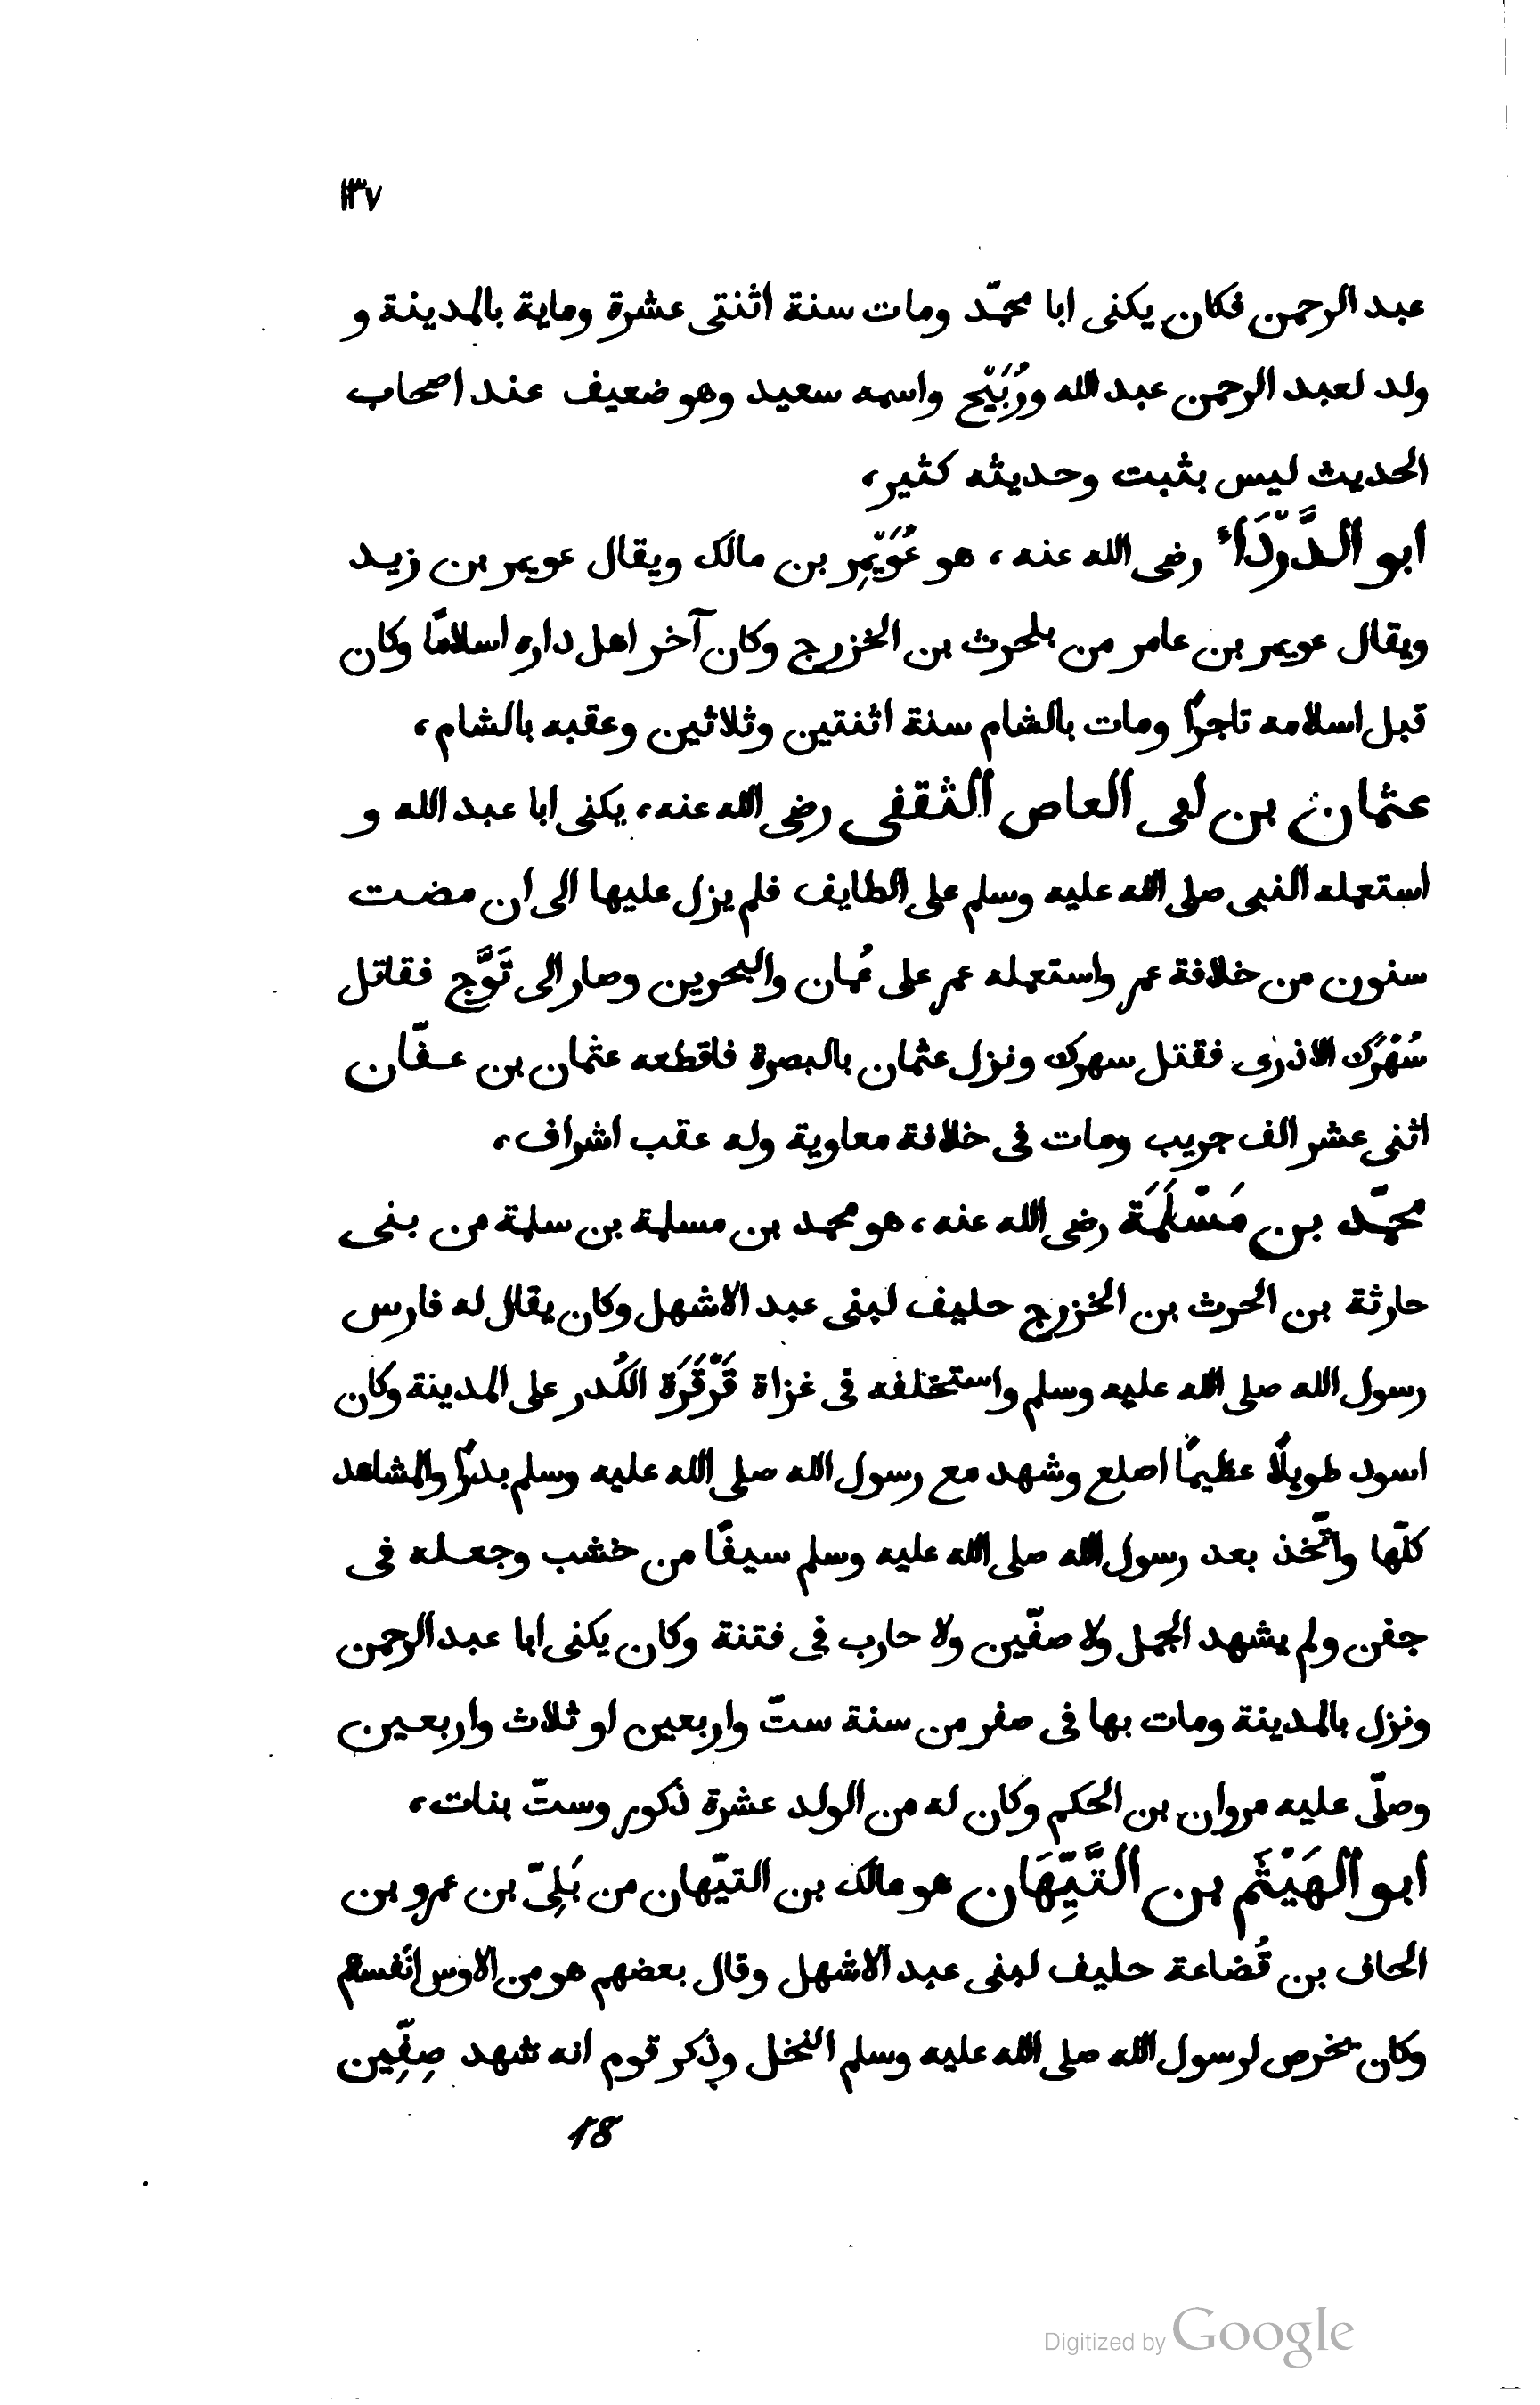 ١٣٧
عبد الرحمن فكان يكنى ابا محمّد ومات سنة اثنتى عشرة وماية بالمدينة و
ولد لعبد الرحمن عبد الله ورُبَيْح واسمه سعيد وهو ضعيف عند اصحاب
الحديث ليس بثبت وحديثه كثير،
ابو الدَّرْدَاء رضى الله عنه، هو عُوَيْمِر بن مالك ويقال عويمر بن زيد
ويقال عويمر بن عامر من بلحرث بن الخزرج وكان آخر اهل داره اسلامًا وكان
قبل اسلامه تاجرًا ومات بالشام سنة اثنتين وثلاثين وعقبه بالشام،
عثمان بن ابى العاص الثقفى رضى الله عنه، يكنى ابا عبد الله و
استعمله النبى صلى الله عليه وسلم على الطايف فلم يزل عليها الى ان مضت
سنون من خلافة عمر واستعمله عمر على عُمان والبحرين وصار الى تَوَّج فقاتل
سُهْرَك الاذرى فقتل سهرك ونزل عثمان بالبصرة فاقطعه عثمان بن عفّان
اثنى عشر الف جريب ومات فى خلافة معاوية وله عقب اشراف،
محمّد بن مَسْلَمَة رضى الله عنه، هو محمد بن مسلمة بن سلمة من بنى
حارثة بن الحرث بن الخزرج حليف لبنى عبد الاشهل وكان يقال له فارس
رسول الله صلى الله عليه وسلم واستخلفه فى غزاة قَرْقَرَة الكُدر على المدينة وكان
اسود طويلًا عظيمًا اصلع وشهد مع رسول الله صلى الله عليه وسلم بدرًا والمشاهد
كلّها واتّخذ بعد رسول الله صلى الله عليه وسلم سيفًا من خشب وجعله فى
جفن ولم يشهد الجمل ولا صفّين ولا حارب فى فتنة وكان يكنى ابا عبد الرحمن
ونزل بالمدينة ومات بها فى صفر من سنة ستّ واربعين او ثلاث واربعين
وصلّى عليه مروان بن الحكم وكان له من الولد عشرة ذكور وستّ بنات،
ابو الهَيْثَم بن التَّيِّهَان هو مالك بن التيّهان من بَلِىّ بن عمرو بن
الحاف بن قُضاعة حليف لبنى عبد الاشهل وقال بعضهم هو من الاوس انفسهم
وكان يخرص لرسول الله صلى الله عليه وسلم النخل وذكر قوم انه شهد صِفِّين
18
Digitized by Google